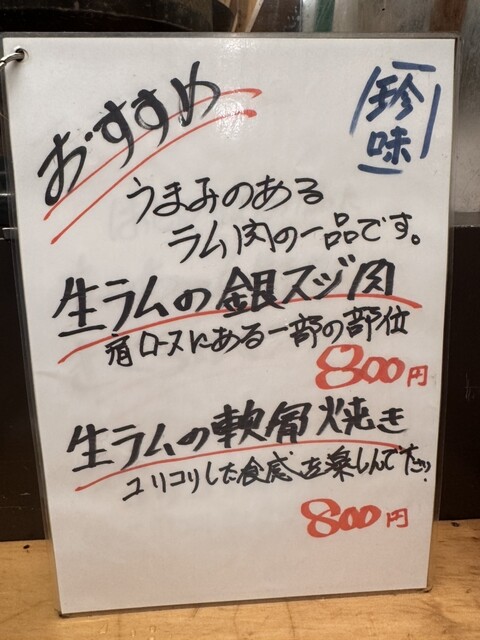 おすすめ
珍味
うまみのある
ラム肉の一品です。
生ラムの銀スジ肉
肩ロースにある一部の部位
800円
生ラムの軟骨焼き
コリコリした食感を楽しんで下さい!
800円